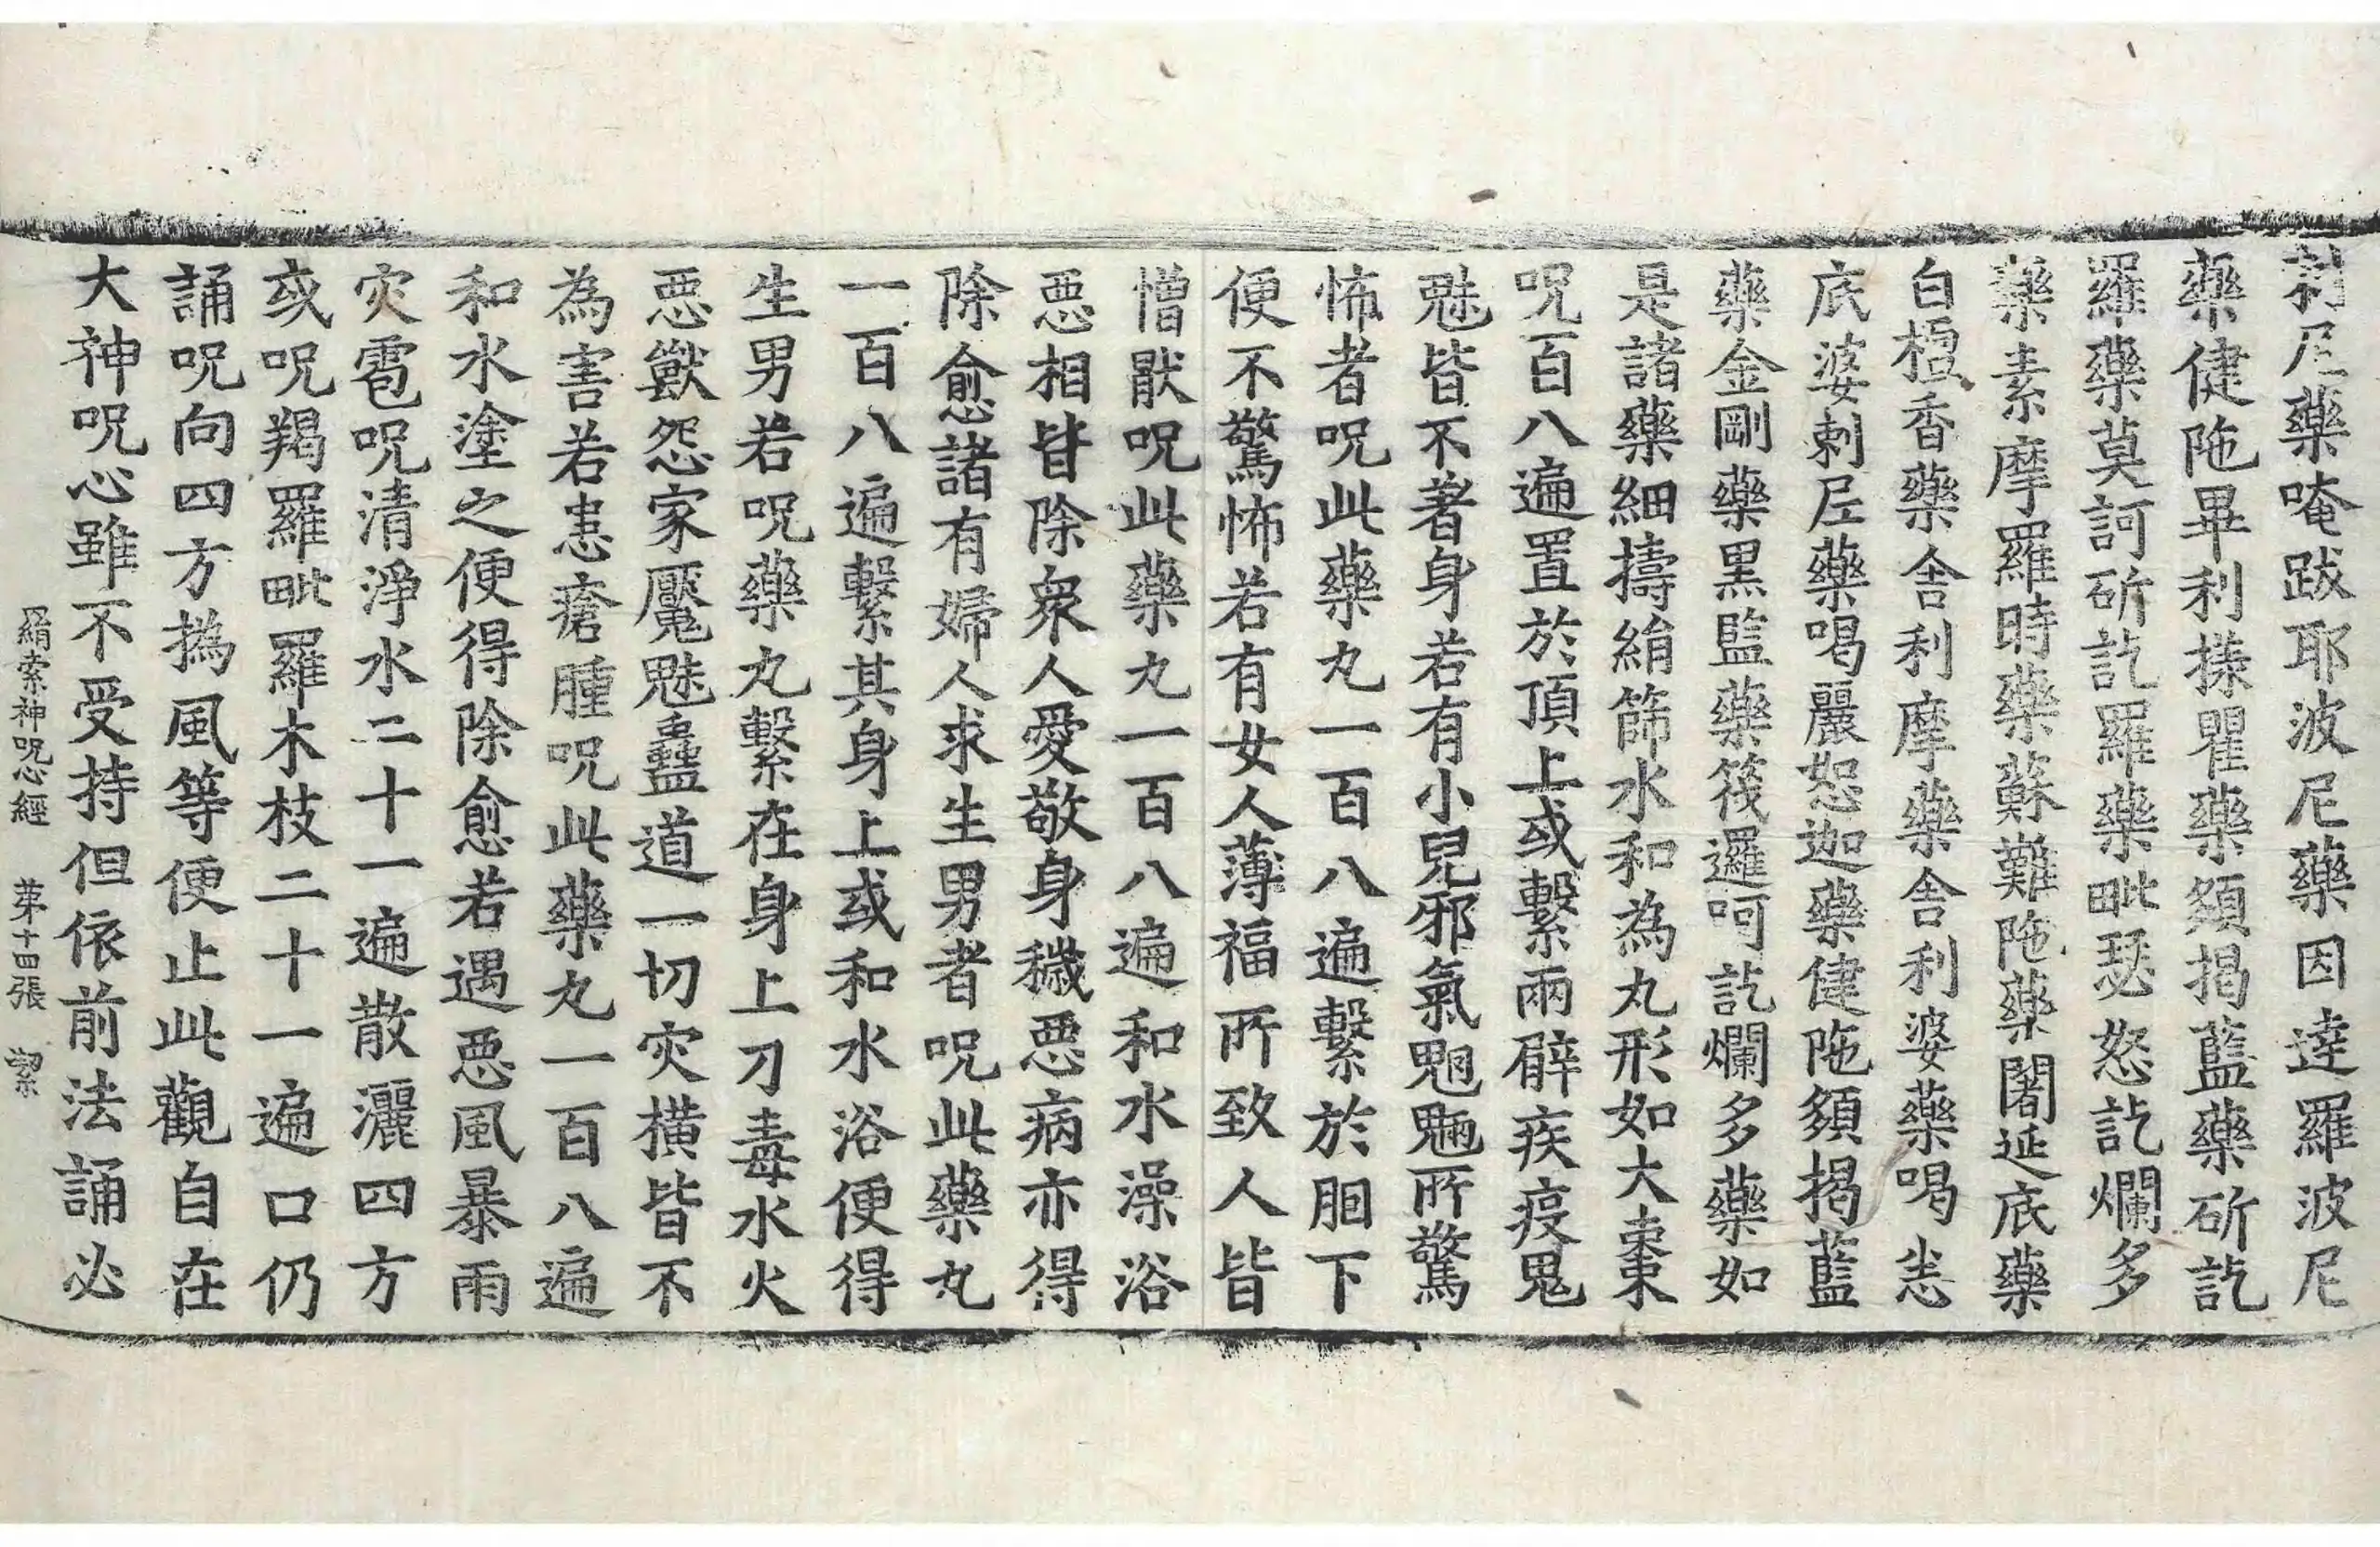 剌尼藥唵跋耶波尼藥因達羅波尼
藥健陁畢利搸瞿藥頞揭藍藥斫訖
羅藥莫訶斫訖羅藥毗瑟怒訖爛多
藥素摩羅時藥蘇難陁藥闍延底藥
白檀香藥舍利摩藥舍利婆藥喝恚
底婆剌𡰱藥喝麗恕迦藥健陁頞揭藍
藥金剛藥黒監藥筏邏呵訖爛多藥如
是諸藥細擣絹篩水和為丸形如大棗
呪百八遍置於頂上或繫兩臂疾疫鬼
魅皆不著身若有小兒邪氣魍魎所驚
怖者呪此藥丸一百八遍繫於𦙄下
便不驚怖若有女人薄福所致人皆
憎猒呪此藥丸一百八遍和水澡浴
惡相皆除衆人愛敬身穢惡病亦得
除愈諸有婦人求生男者呪此藥丸
一百八遍繫其身上或和水浴便得
生男若呪藥丸繫在身上刀毒水火
惡獸怨家魘魅蠱道一切灾橫皆不
為害若患瘡腫呪此藥丸一百八遍
和水塗之便得除愈若遇惡風暴雨
灾雹呪清淨水二十一遍散灑四方
或呪羯羅毗羅木枝二十一遍口仍
誦呪向四方撝風等便止此觀自在
大神呪心雖不受持但依前法誦必
羂索神呪心經 第十四張 絜